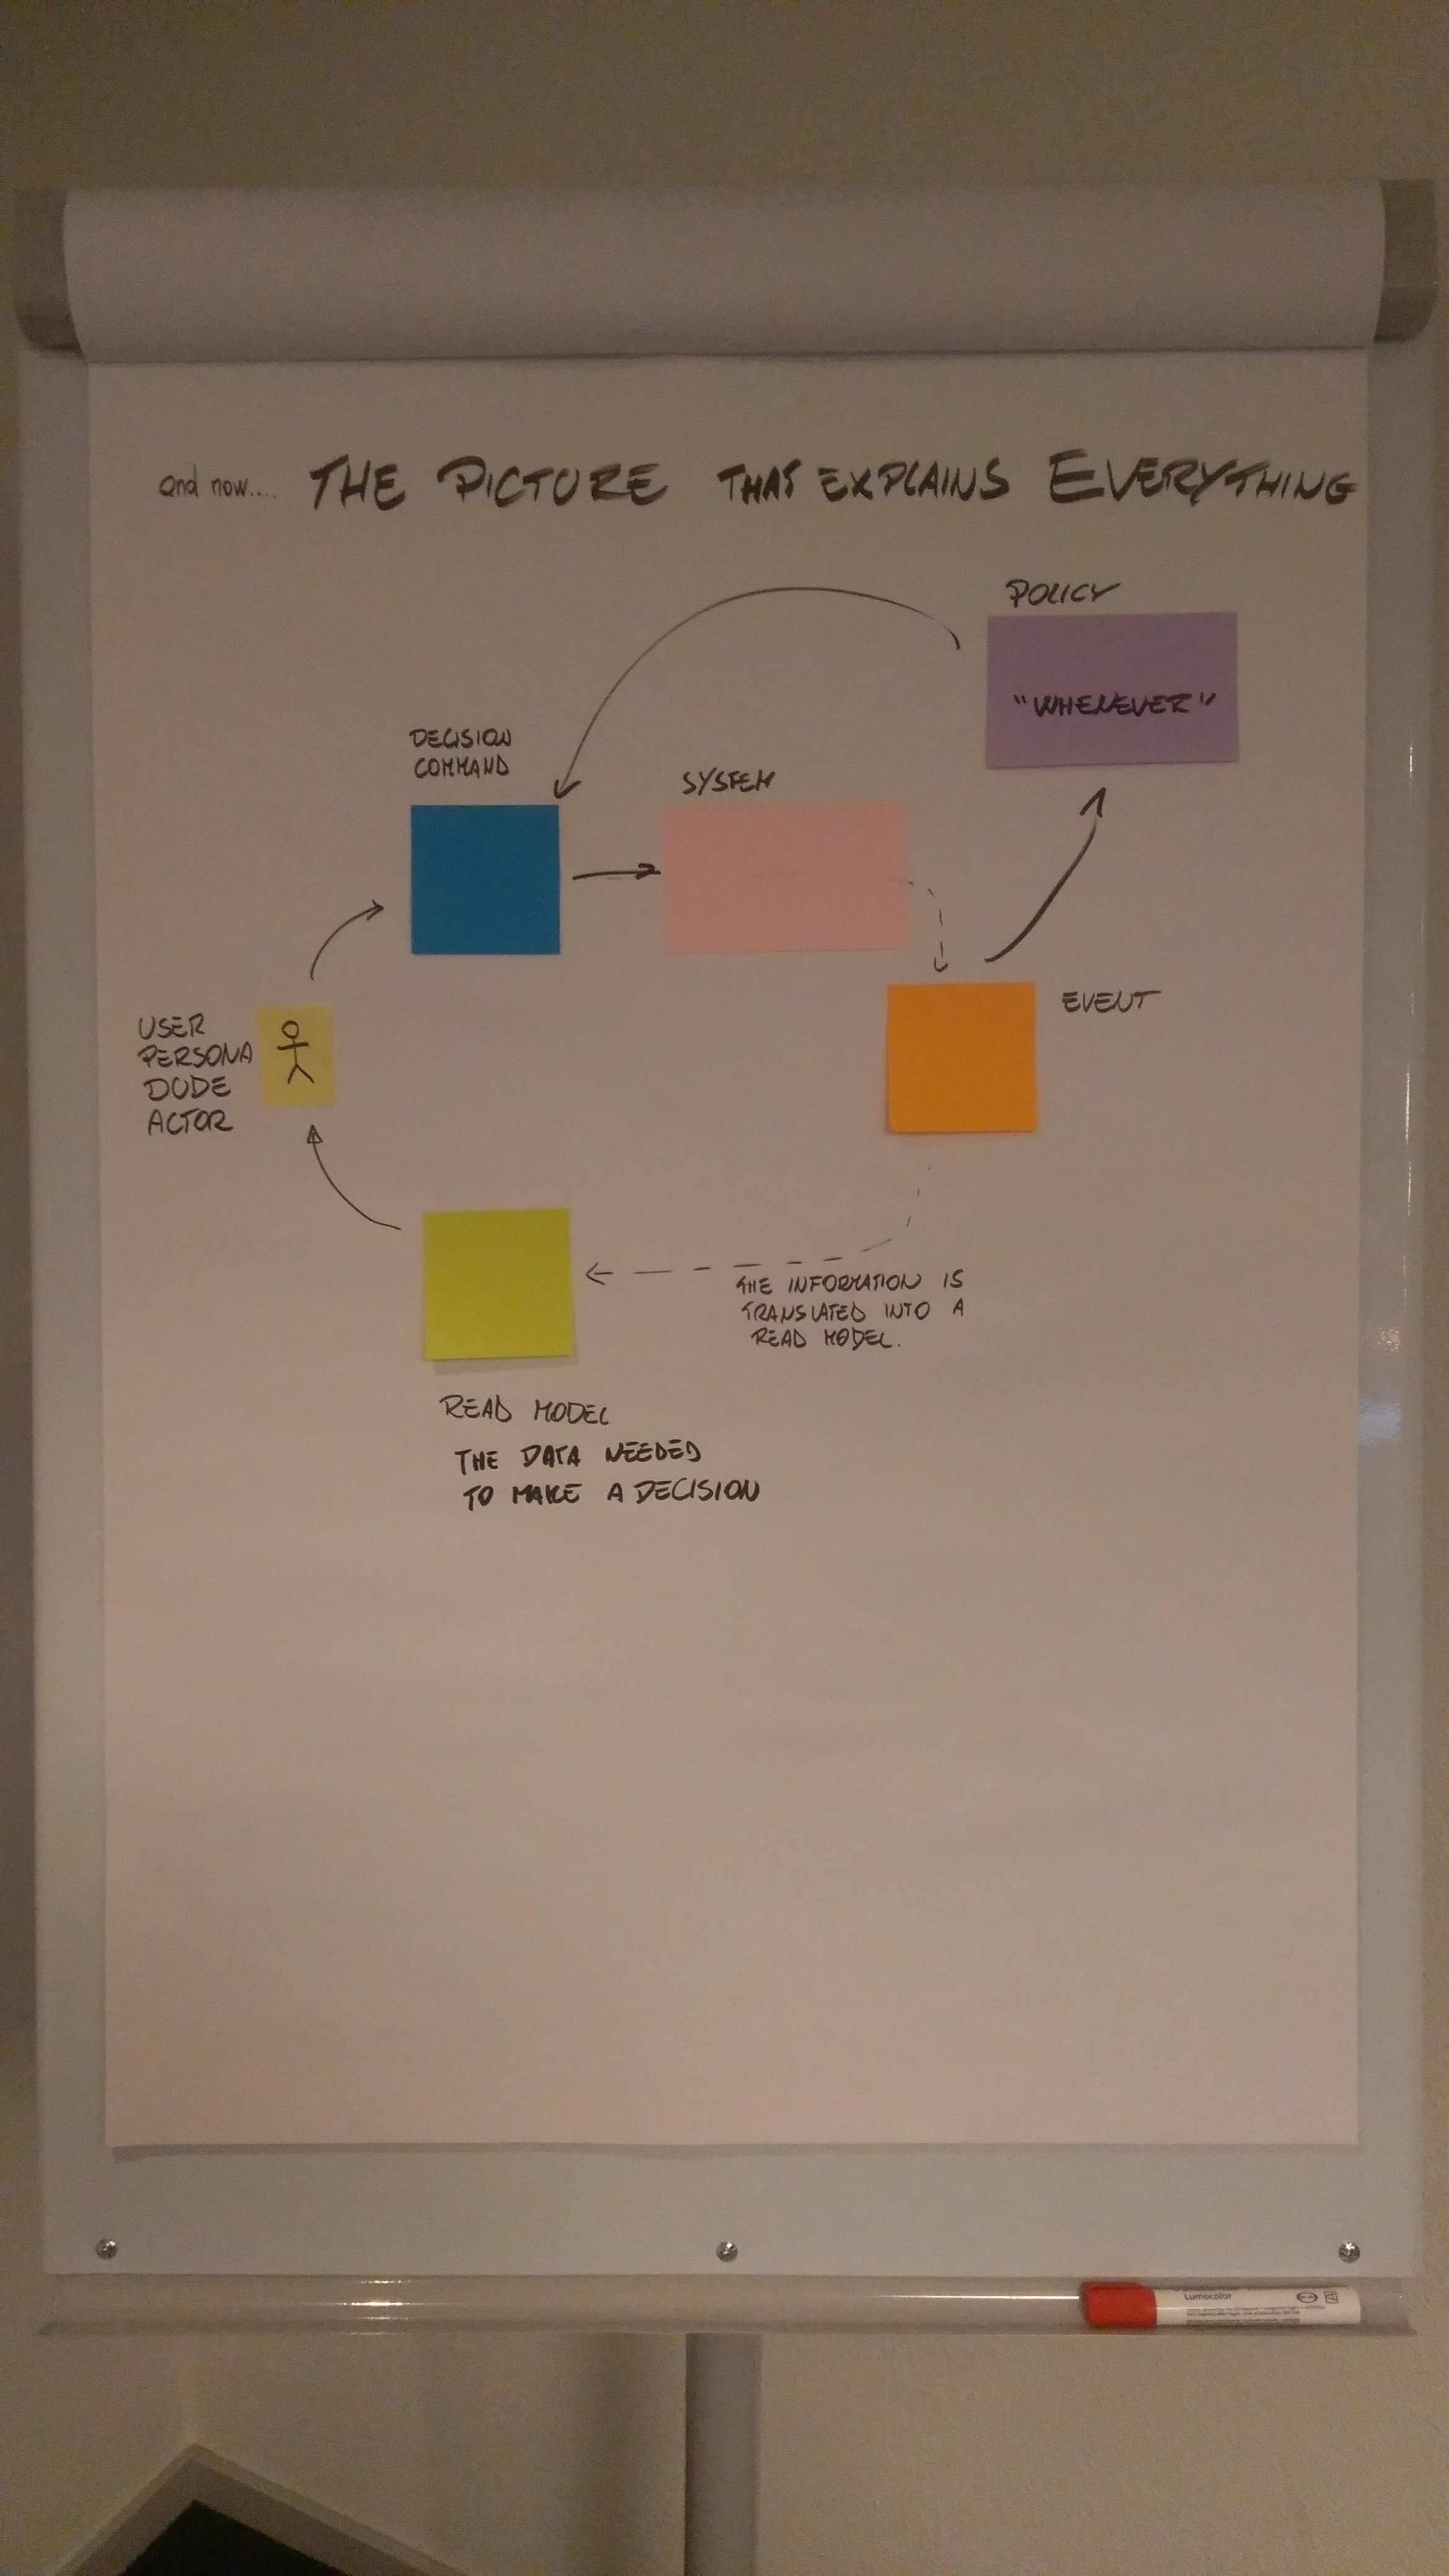 and now.... THE PICTURE THAT EXPLAINS EVERYTHING
POLICY
"WHENEVER"
DECISION
COMMAND
SYSTEM
EVENT
USER
PERSONA
DUDE
ACTOR
THE INFORMATION IS
TRANSLATED INTO A
READ MODEL.
READ MODEL
THE DATA NEEDED
TO MAKE A DECISION
Lumocolor